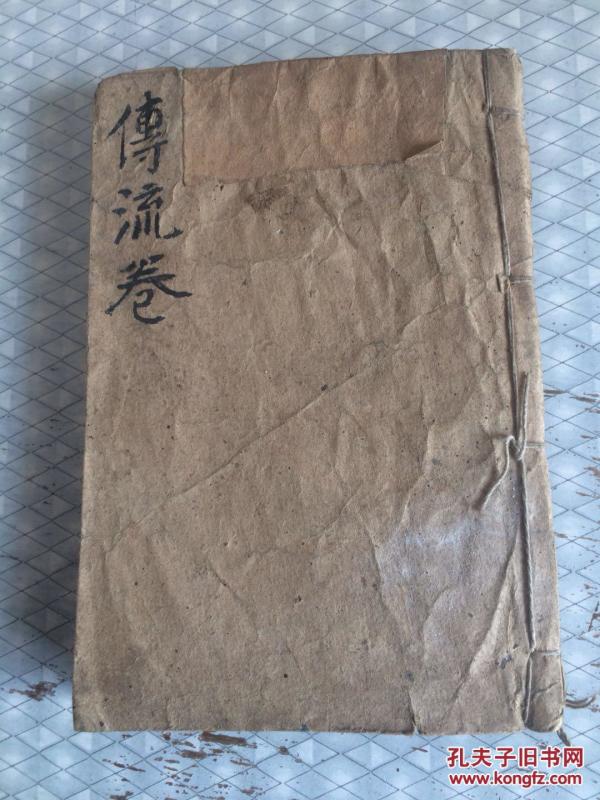 傳流卷
孔夫子旧书网
www.kongfz.com